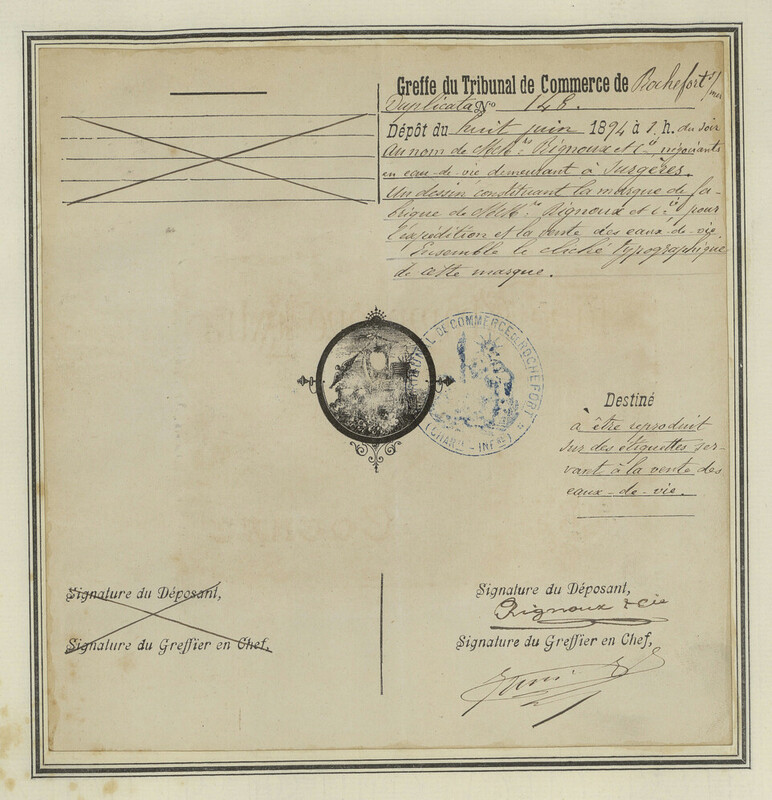 Greffe du Tribunal de Commerce de Rochefort s/mer
Duplicata No 148.
Dépôt du huit juin 1894 à 1. h. du soir
Au nom de MM.rs Rignoux et Cie, négociants
en eau-de-vie demeurant à Surgères.
Un dessin constituant la marque de fa-
brique de MM.rs Rignoux et Cie pour
l'expédition et la vente des eaux-de-vie.
Ensemble le cliché typographique
de cette marque.
TRIBUNAL DE COMMERCE DE ROCHEFORT
(CHARTE - INFRE)
Destiné
à être reproduit
sur des étiquettes ser-
vant à la vente des
eaux-de-vie.
Signature du Déposant,
Signature du Greffier en Chef,
Signature du Déposant,
Rignoux & Cie
Signature du Greffier en Chef,